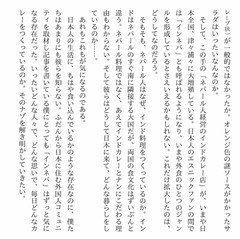 レープ状）が一般的ではなかったか。オレンジ色の謎ソースがかかったサ
ラダはいったいなんなのか。
そして、この手の「ネパール人経営のインドカレー店」が、いまや日
本全国、津々浦々に大増殖している。日本人のエスニックファンの間で
は「インネパ」とも呼ばれるようになり、いまや外食のひとつのジャン
ルを形成しているとさえいえるかもしれない。これだけ拡大したのは、
どんなわけなのだろう。
そもそも、ネパール人はなぜ、インド料理をつくっているのか。イン
ドはネパールのすぐ南に隣接する大国だが、両国の食文化はずいぶんと
違う。ネパール料理ではなく、あえてインドカレーとナンにこだわる理
由もわからない。そして彼らはどうして日本に来て、どんな暮らしをし
ているのか……。
あれもこれもが気になるのである。
日本人の生活に、もはや食い込んでいるかのような存在なのに、僕た
ちはあまりに彼らを知らない。ふだんから日本に住む外国人コミュニ
ティを取材し記事を書いている僕にとっても「インネパ」はずっと気に
なる存在だった。いったいどんな人々で、どんな思いで、毎日どんなカ
レーをつくっているのか。そのナゾを解き明かしていきたい。